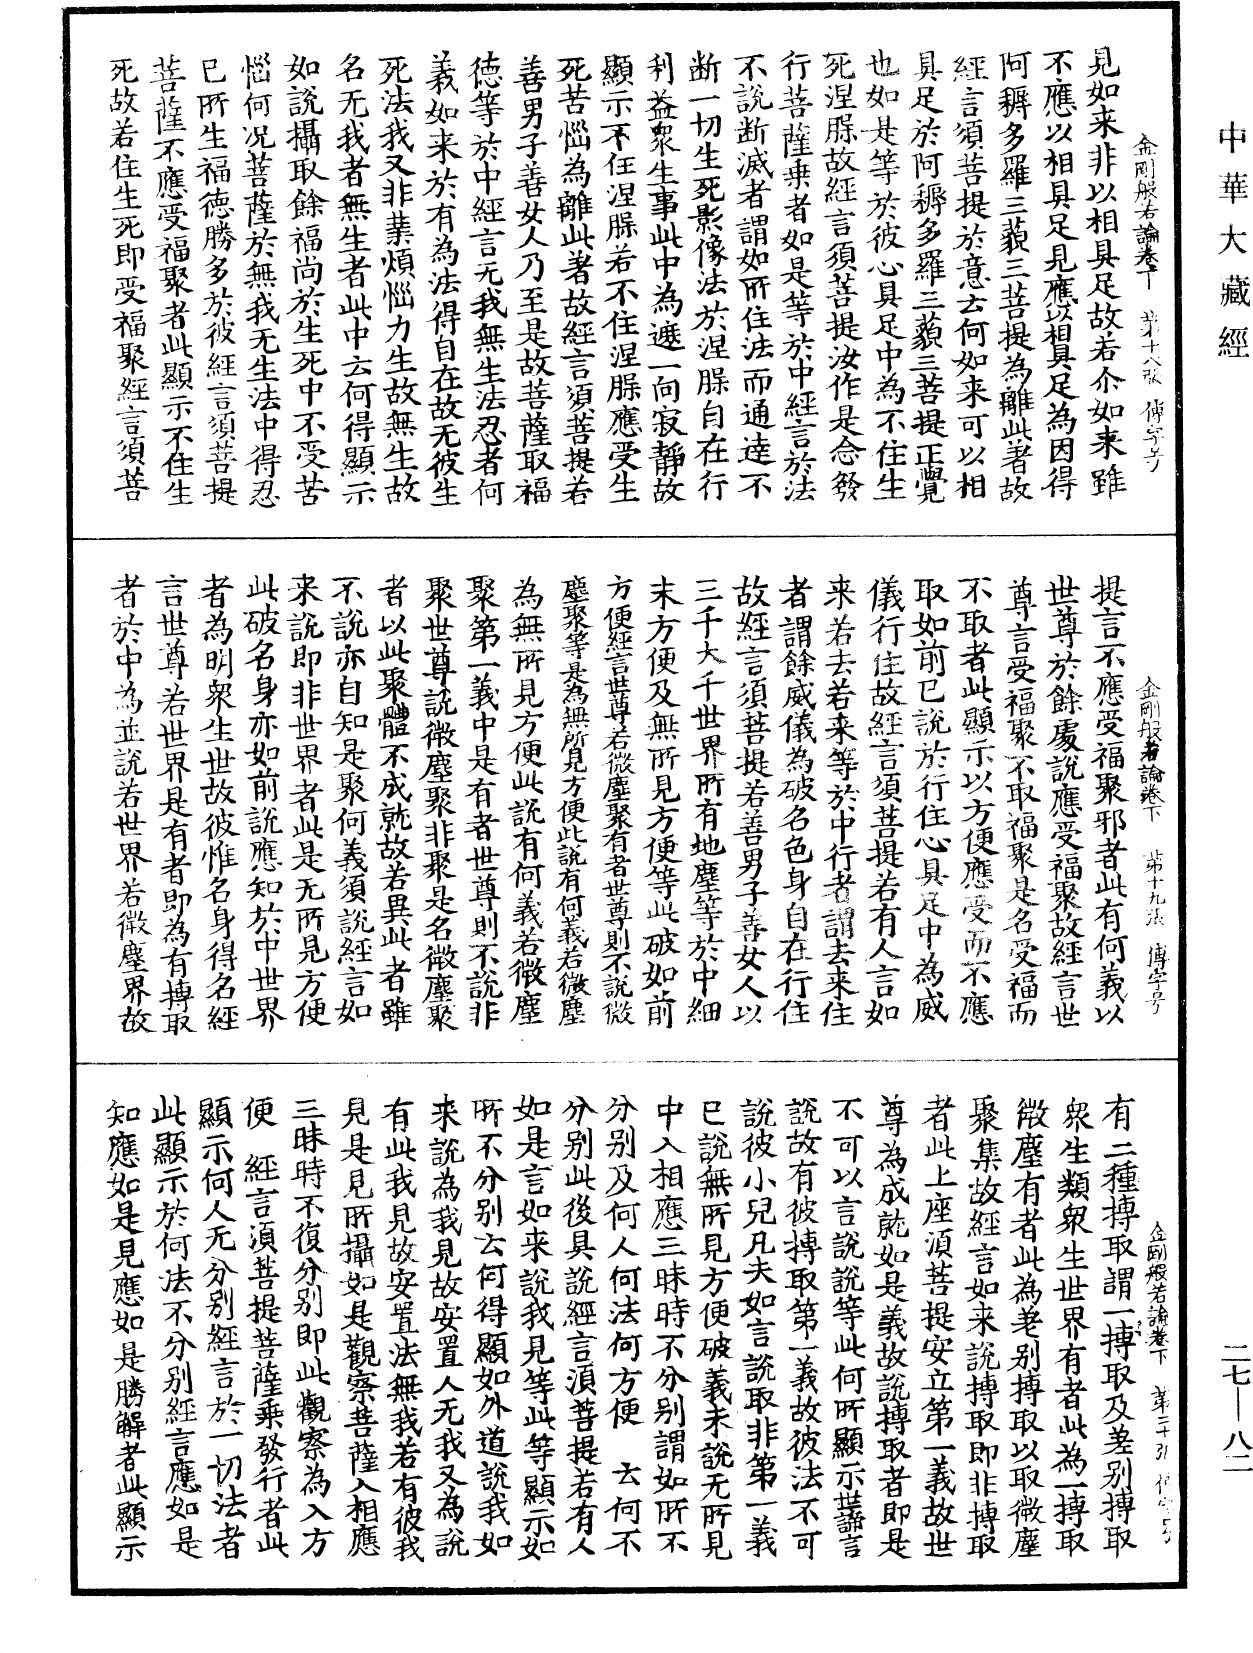 中華大藏經
金剛般若論卷下　第十八張　傅字号
見如来非以相具足故若尒如来雖
不應以相具足見應以相具足為因得
阿耨多羅三藐三菩提為離此著故
經言須菩提於意云何如来可以相
具足於阿耨多羅三藐三菩提正覺
也如是等於彼心具足中為不住生
死涅槃故經言須菩提汝作是念發
行菩薩乗者如是等於中經言於法
不說断滅者謂如所住法而通達不
断一切生死影像法於涅槃自在行
利益衆生事此中為遮一向寂靜故
顯示不住涅槃若不住涅槃應受生
死苦惱為離此著故經言須菩提若
善男子善女人乃至是故菩薩取福
德等於中經言无我無生法忍者何
義如来於有為法得自在故无彼生
死法我又非業煩惱力生故無生故
名无我者無生者此中云何得顯示
如說攝取餘福尚於生死中不受苦
惱何况菩薩於無我无生法中得忍
已所生福德勝多於彼經言須菩提
菩薩不應受福聚者此顯示不住生
死故若住生死即受福聚經言須菩
金剛般若論卷下　第十九張　傅字号
提言不應受福聚邪者此有何義以
世尊於餘處說應受福聚故經言世
尊言受福聚不取福聚是名受福而
不取者此顯示以方便應受而不應
取如前已說於行住心具足中為威
儀行住故經言須菩提若有人言如
来若去若来等於中行者謂去来住
者謂餘威儀為破名色身自在行住
故經言須菩提若善男子善女人以
三千大千世界所有地塵等於中細
末方便及無所見方便等此破如前
方便經言世尊若微塵聚有者世尊則不說微
塵聚等是為無所見方便此說有何義若微塵
為無所見方便此說有何義若微塵
聚第一義中是有者世尊則不說非
聚世尊說微塵聚非聚是名微塵聚
者以此聚體不成就故若異此者雖
不說亦自知是聚何義須說經言如
来說即非世界者此是无所見方便
此破名身亦如前說應知於中世界
者為明衆生世故彼惟名身得名經
言世尊若世界是有者即為有摶取
者於中為並說若世界若微塵界故
金剛般若論卷下　第二十張　傅字号
有二種摶取謂一摶取及差别摶取
衆生類衆生世界有者此為一摶取
微塵有者此為差别摶取以取微塵
聚集故經言如来說摶取即非摶取
者此上座須菩提安立第一義故世
尊為成就如是義故說摶取者即是
不可以言說說等此何所顯示世諦言
說故有彼摶取第一義故彼法不可
說彼小兒凡夫如言說取非第一義
已說無所見方便破義未說无所見
中入相應三昧時不分别謂如所不
分别及何人何法何方便　云何不
分别此後具說經言須菩提若有人
如是言如来說我見等此等顯示如
所不分别云何得顯如外道說我如
来說為我見故安置人无我又為說
有此我見故安置法無我若有彼我
見是見所攝如是觀察菩薩入相應
三昧時不復分别即此觀察為入方
便　經言須菩提菩薩乗發行者此
顯示何人无分别經言於一切法者
此顯示於何法不分别經言應如是
知應如是見應如是勝解者此顯示
二七—八二